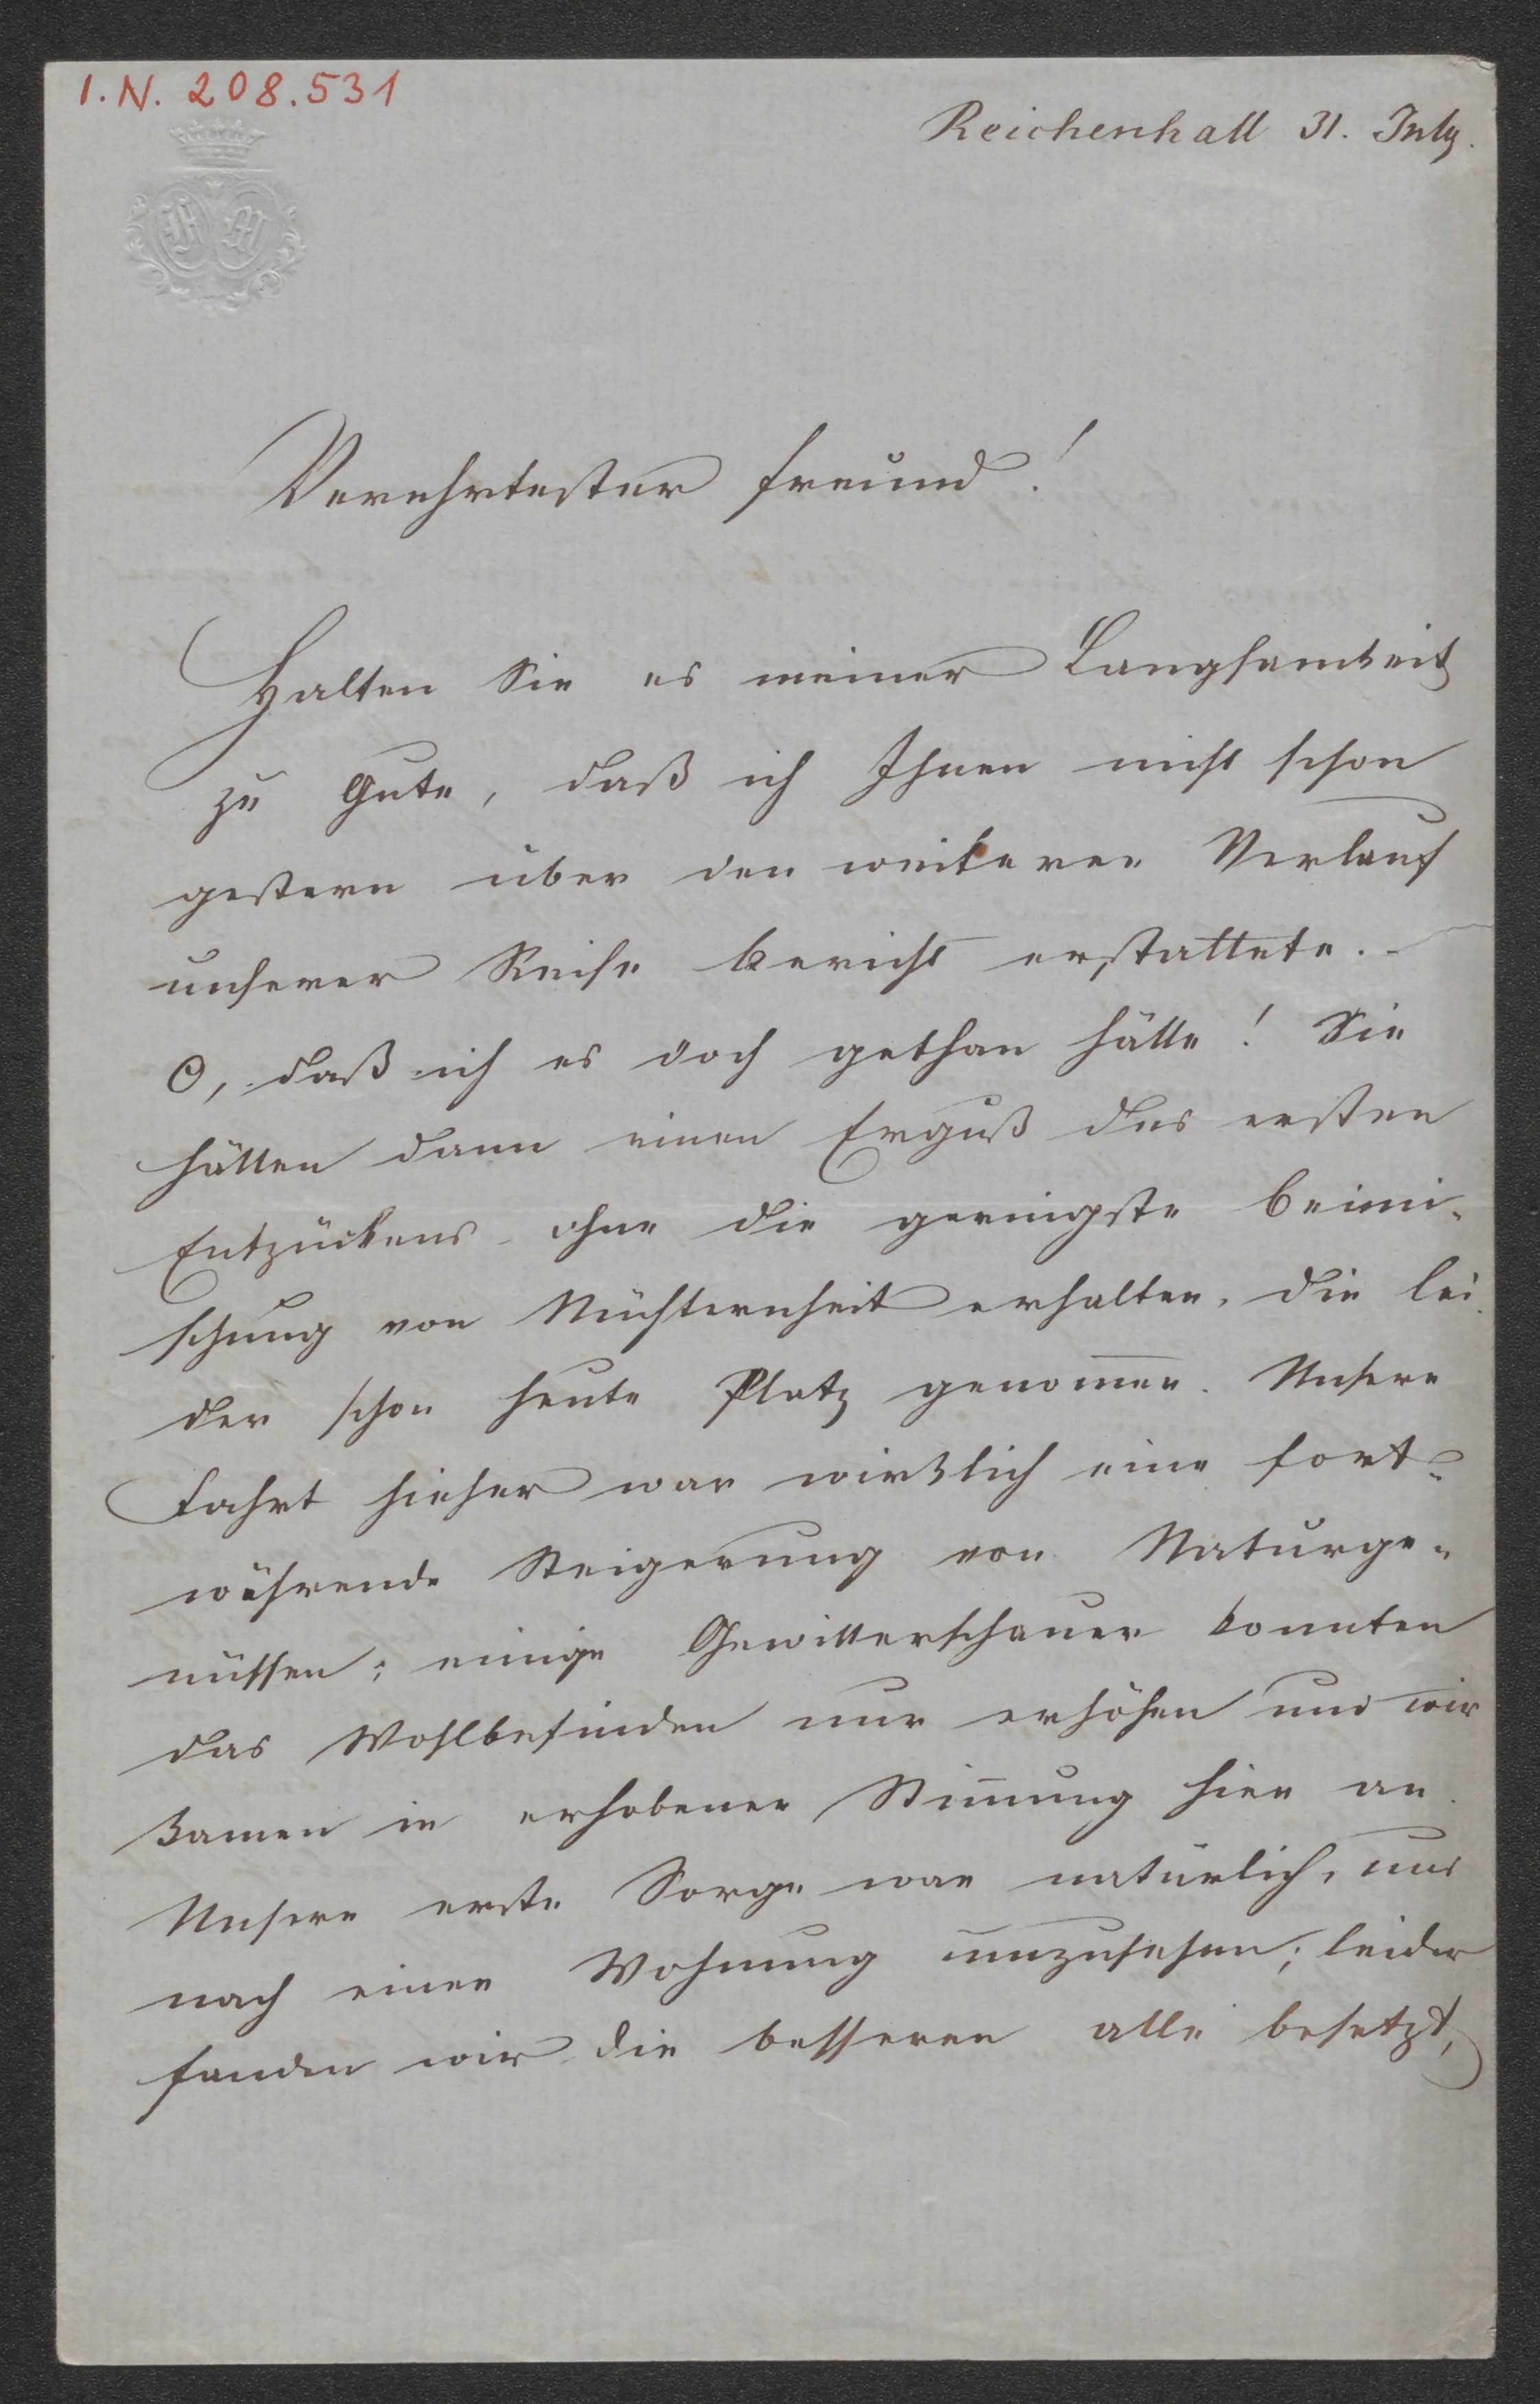 I.N. 208.531
Reichenhall 31. July.
Verehrtester Freund!
Halten Sie es meiner Langsamkeit
zu Gute, daß ich Ihnen nicht schon
gestern über den weiteren Verlauf
unserer Reise bericht erstattete. -
O, daß ich es doch gethan hätte! Sie
hätten dann einen Erguß des ersten
Entzückens ohne die geringste Beimi-
schung von Nüchternheit erhalten, die lei-
der schon heute Platz genom̄en. Unsere
Fahrt hieher war wirklich eine fort-
währende Steigerung von Naturge-
nüssen; einige Gewitterschauer konnten
das Wohlbefinden nur erhöhen und wir
kamen in erhobener Stim̄ung hier an.
Unsere erste Sorge war natürlich, uns
nach einer Wohnung umzusehen; leider
fanden wir die besseren alle besetzt,